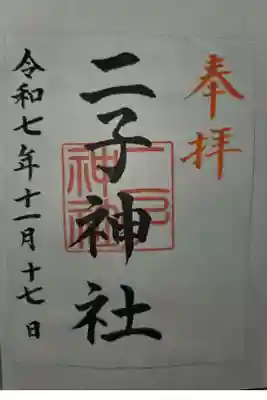 奉拝
二子神社
二子神社
令和七年十一月十七日